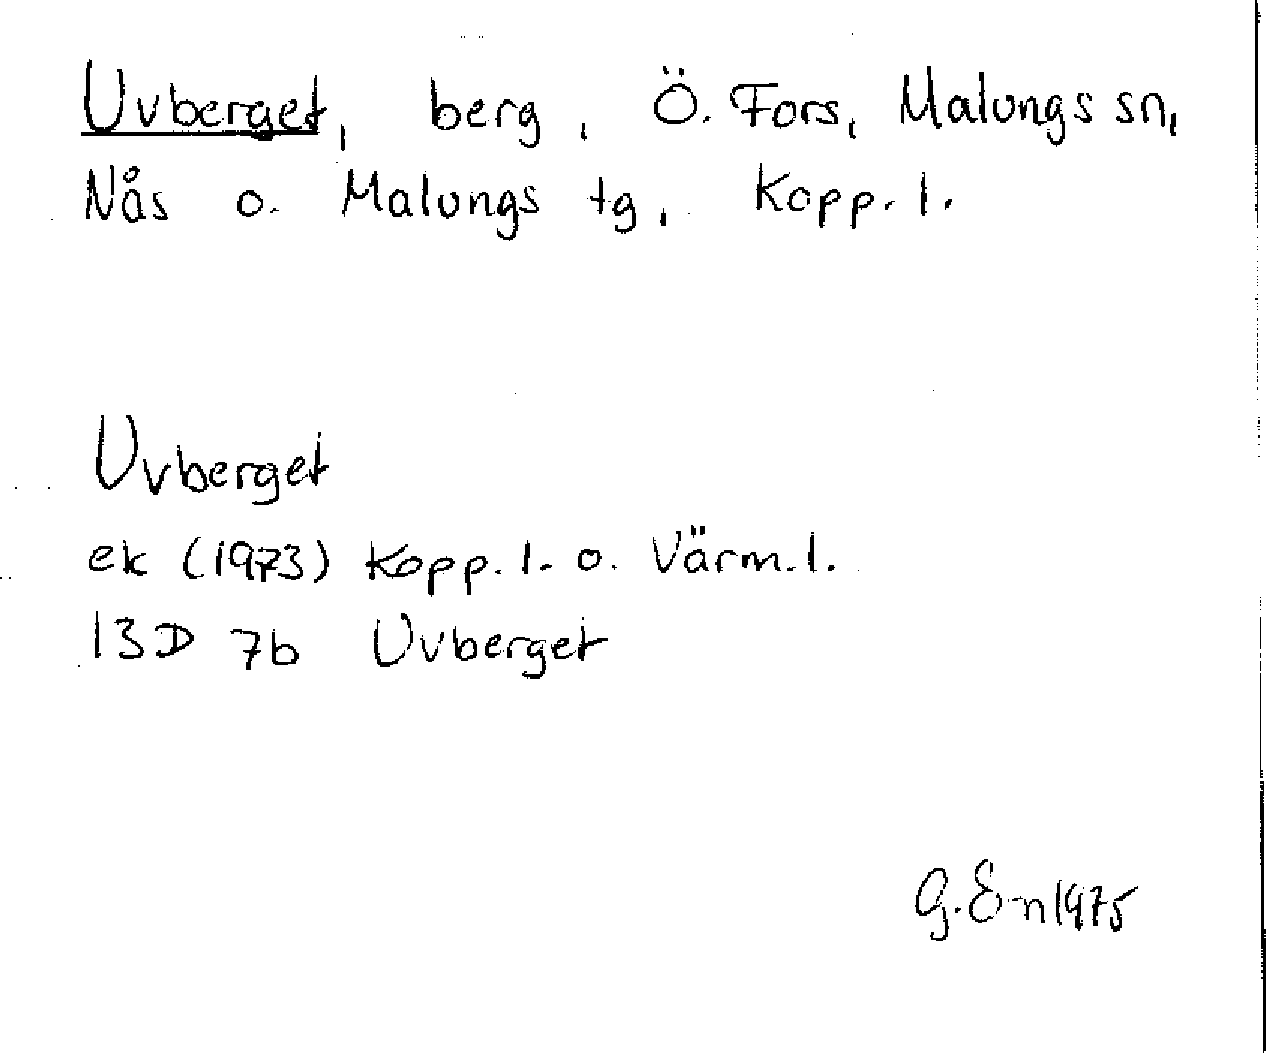 Uvberget, berg, Ö. Fors, Malungs sn,
Nås o. Malungs tg, Kopp. l.
Uvberget
ek (1973) Kopp. l. o. Värm. l.
13D 7b Uvberget
G. E-n 1975